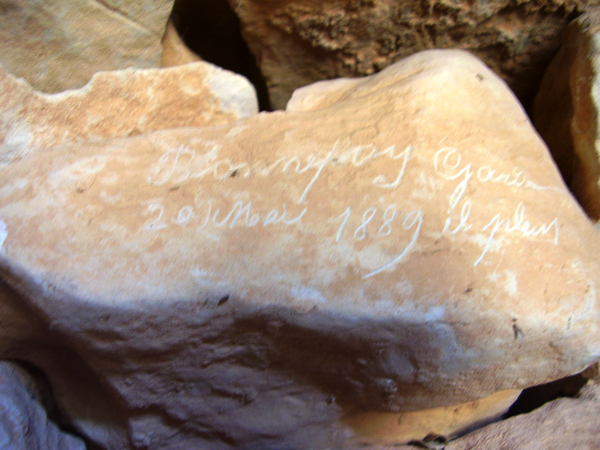 Bonnefoy
20 Mai 1889 il pleut